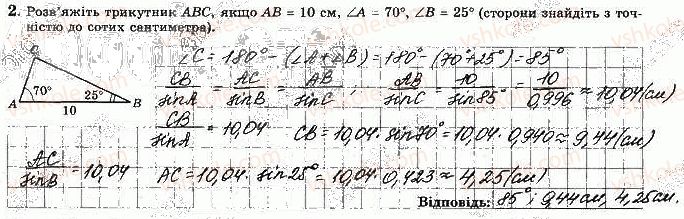 2. Розв'яжіть трикутник ABC, якщо AB = 10 см, ∠A = 70°, ∠B = 25° (сторони знайдіть з точ-
ністю до сотих сантиметра).
∠C = 180° - (∠A+∠B) = 180° - (70°+25°) = 85°
C
CB/sinA = AC/sinB = AB/sinC ; AB/sinC = 10/sin85° = 10/0,996 ≈ 10,04 (см)
A 70° 25° B
10
CB/sinA = 10,04 CB = 10,04 · sin70° = 10,04 · 0,940 ≈ 9,44 (см)
AC/sinB = 10,04 AC = 10,04 · sin25° = 10,04 · 0,423 ≈ 4,25 (см)
Відповідь: 85°; 9,44 см, 4,25 см.